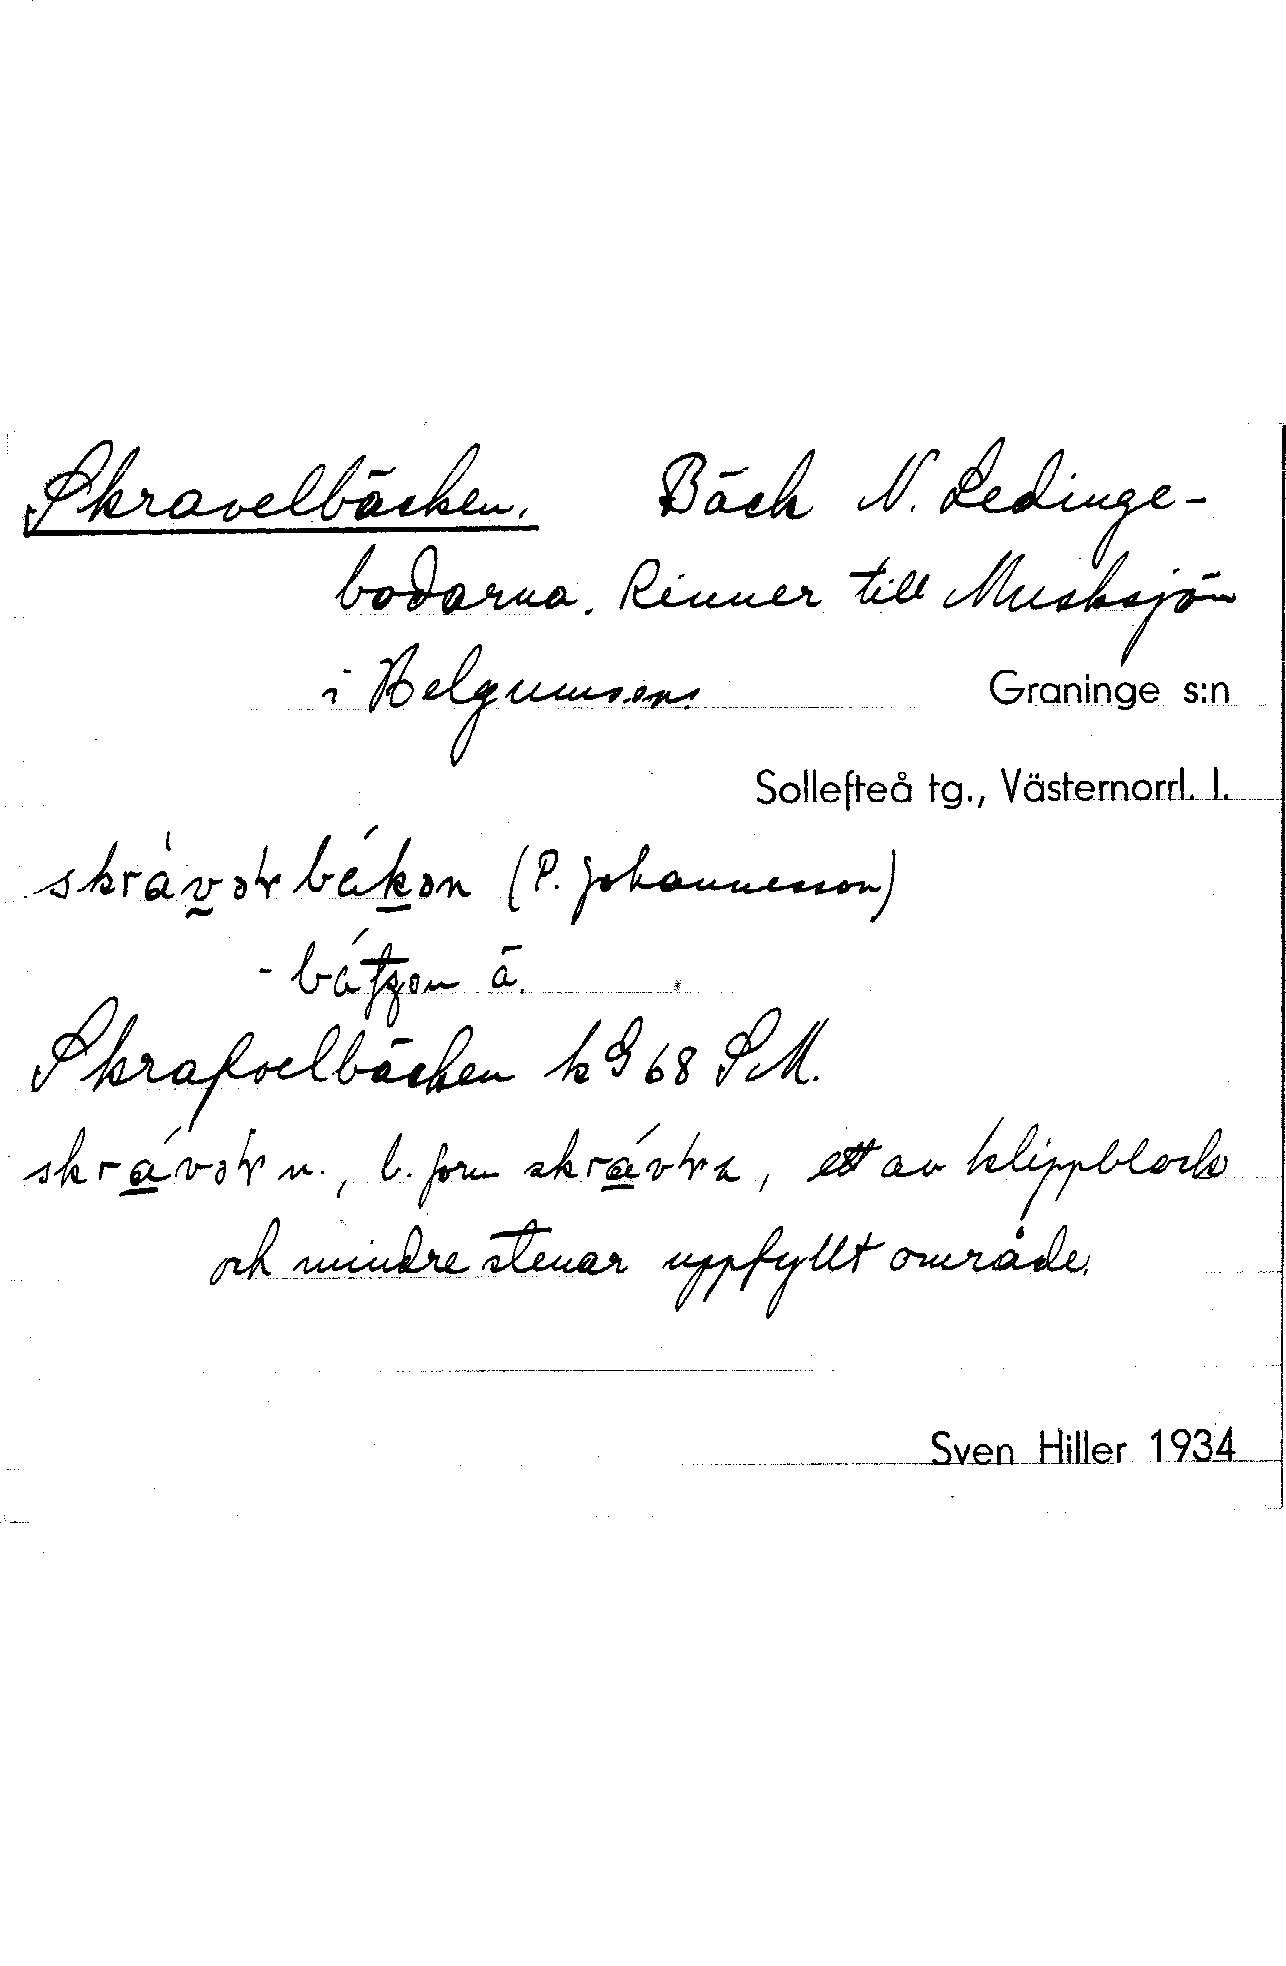 Skravelbäcken. Bäck N. Ledinge-
bodarna. Rinner till Musksjön
i Helgumssn.
Graninge s:n
Sollefteå tg., Västernorrl. l.
(P. Johannesson)
ä.
Skrafvelbäcken kG 68 SM.
n., b. form ett av klippblock
och mindre stenar uppfyllt område.
Sven Hiller 1934